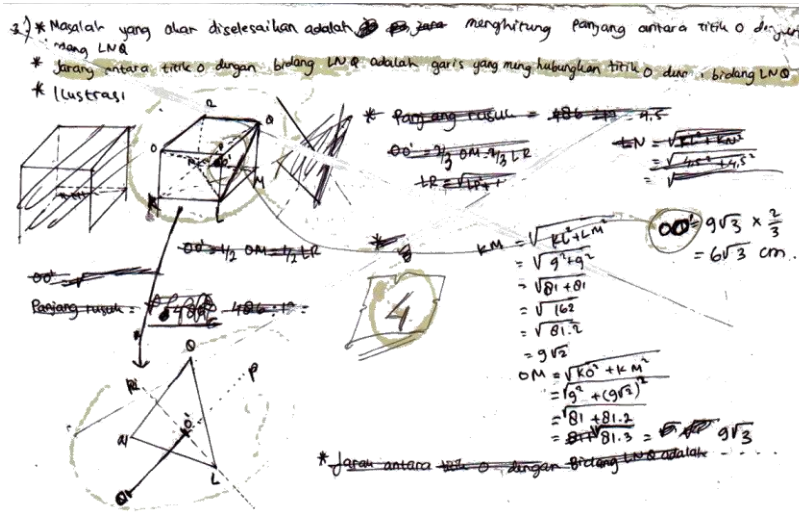 3.) * Masalah yang akan diselesaikan adalah menghitung panjang antara titik O dengan
bidang LNQ
* Jarang antara titik O dengan bidang LNQ adalah garis yang menghubungkan titik O dan bidang LNQ
* Ilustrasi
R
Q
O
O'
M
L
* Panjang rusuk = 486 4.5
OO' = 2/3 OM = 2/3 LR
LR = √
LN = √KL² + KN²
= √4.5² + 4.5²
= √
OO' = 1/2 OM = 1/2 LR
OO' = √
Panjang rusuk =
4
KM = √KL² + LM²
= √9² + 9²
= √81 + 81
= √162
= √81.2
= 9√2
OM = √KO² + KM²
= √9² + (9√2)²
= √81 + 81.2
= √81.3 = 9√3
OO' = 9√3 × 2/3
= 6√3 cm.
Q
R
P
N
O'
L
O
* Jarak antara titik O dengan Bidang LNQ adalah ....